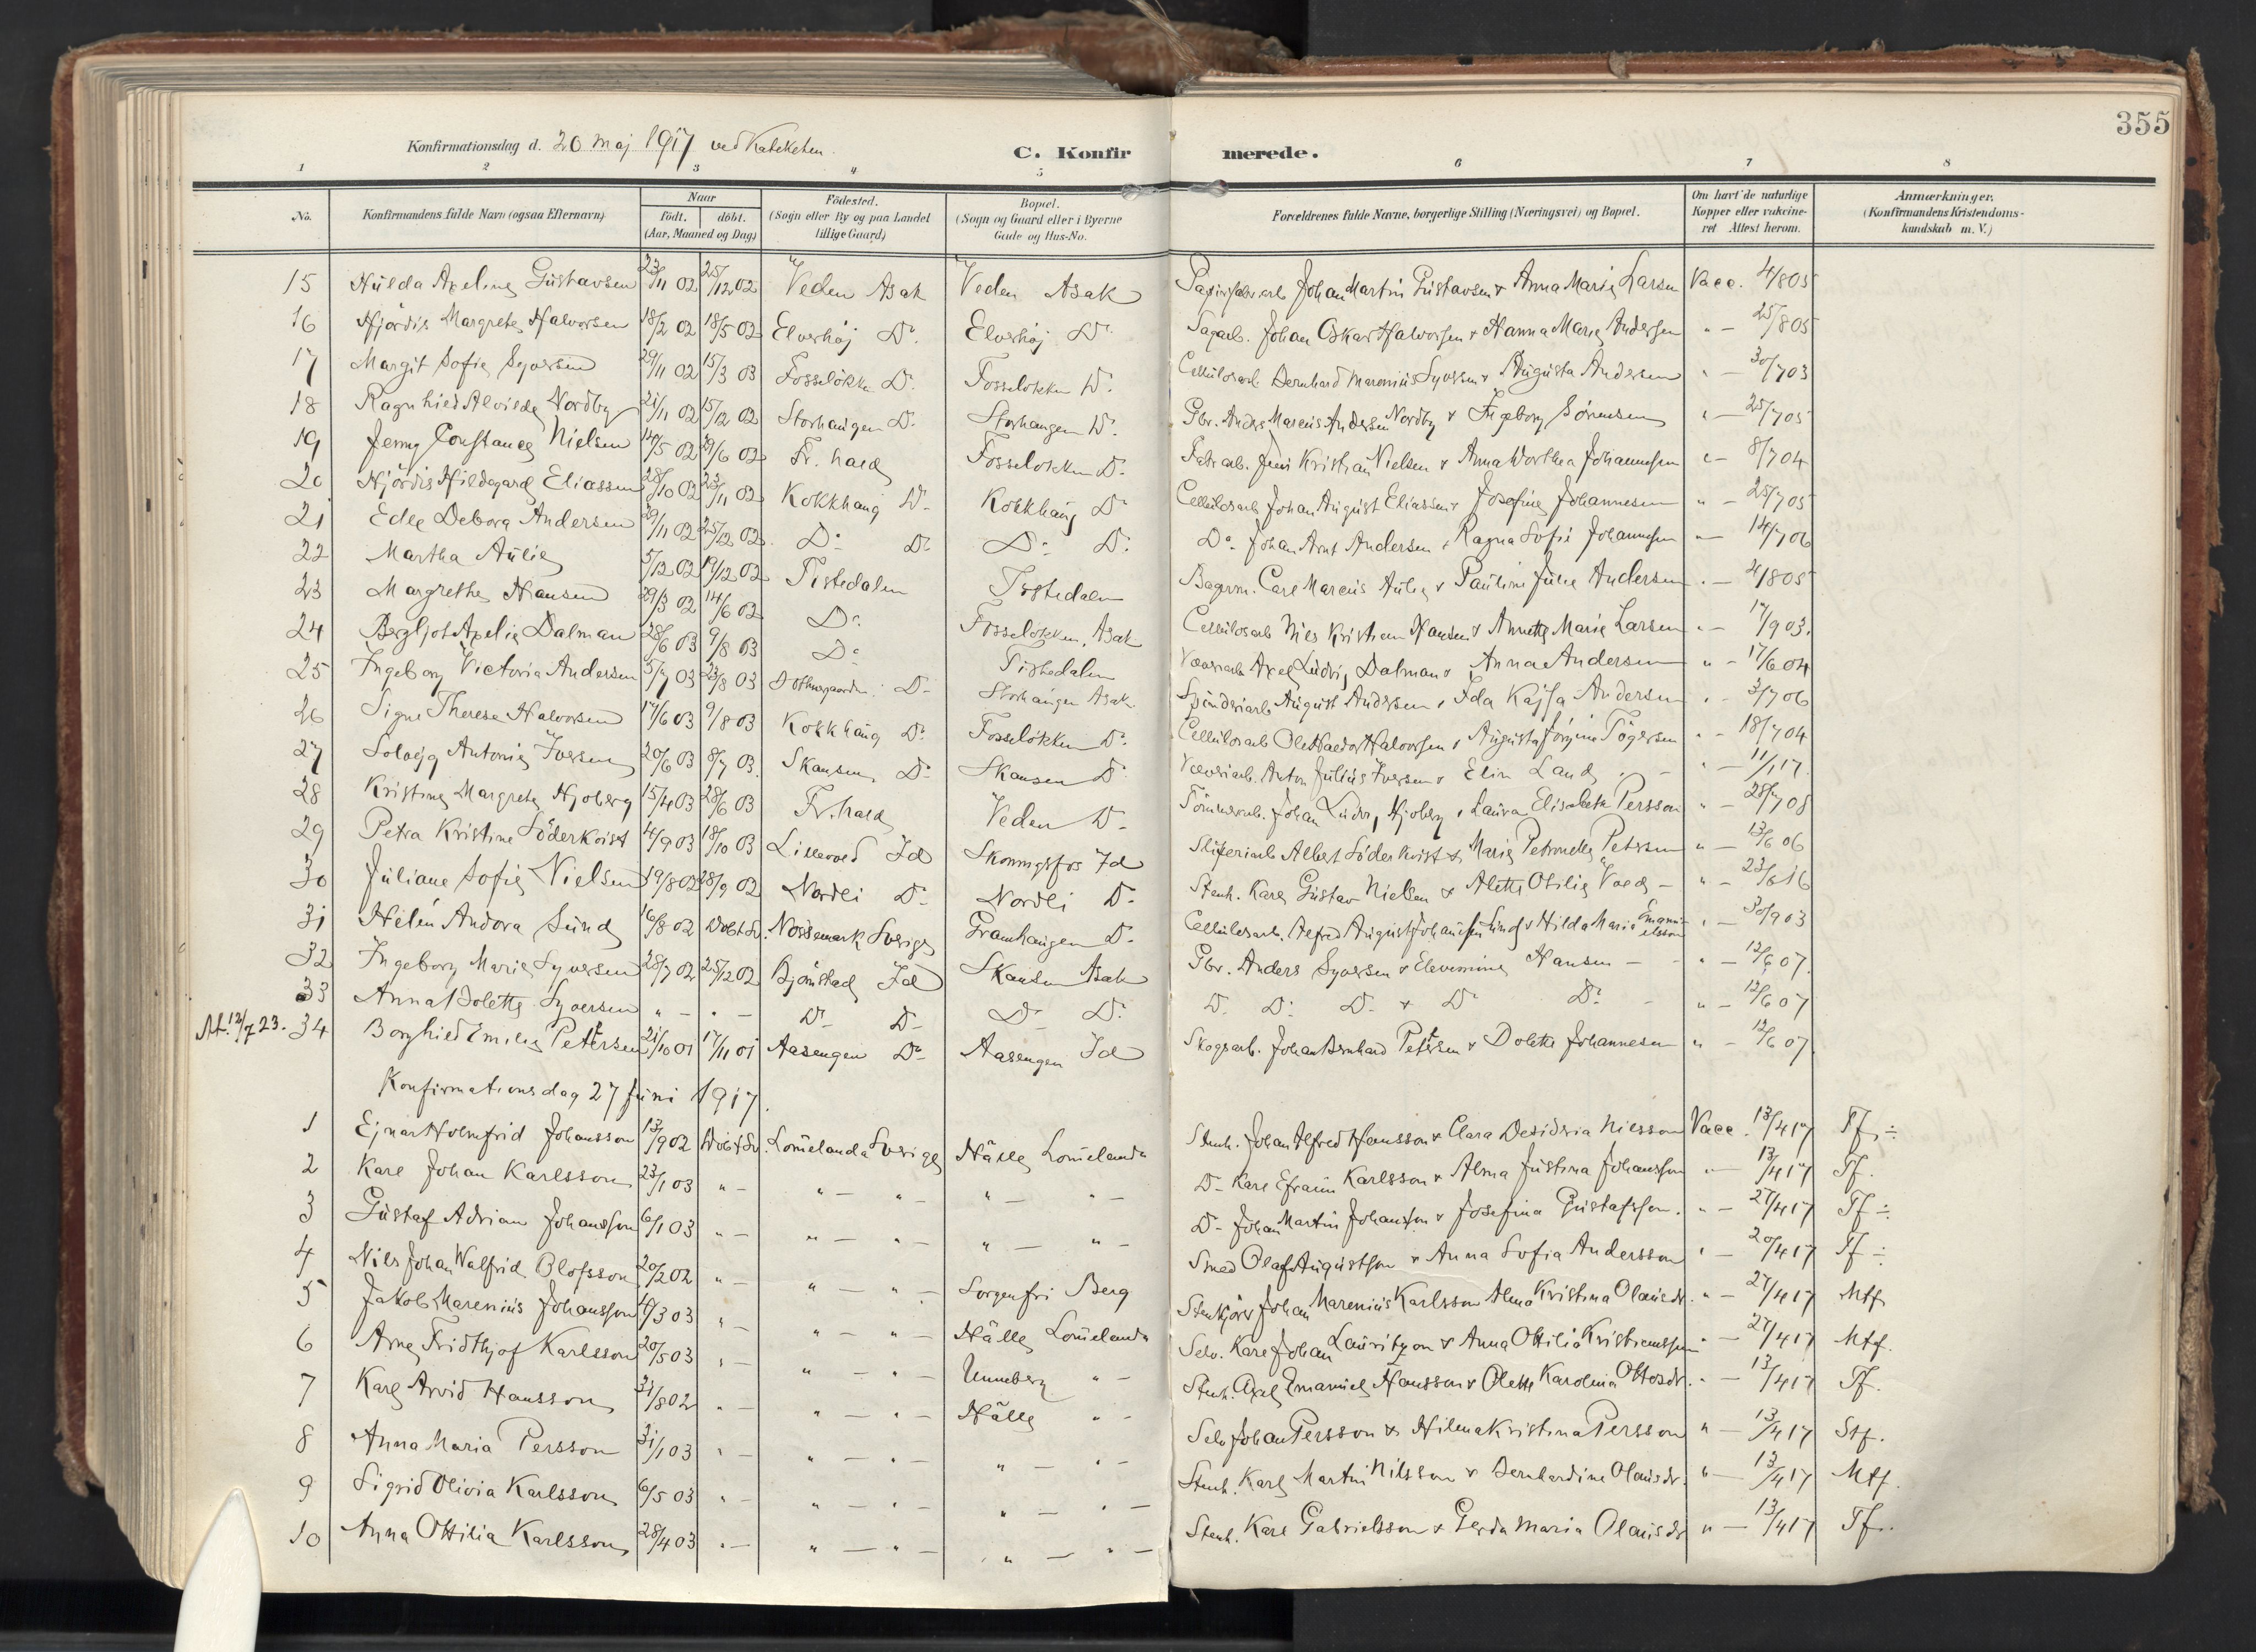 355
Konfirmationsdag d. 20 maj 1917 ved Katekehen.
C. Konfirmerede.
1 2 3 4 5 6 7 8
No. Konfirmandens fulde Navn (ogsaa Efternavn) Naar født. døbt. (Aar, Maaned og Dag) Fødested. (Sogn eller By og paa Landet tillige Gaard) Bopæl. (Sogn og Gaard eller i Byerne Gade og Hus-No. Forældrenes fulde Navne, borgerlige Stilling (Næringsvei) og Bopæl. Om havt de naturlige Kopper eller vakcineret Attest herom. Anmærkninger. (Konfirmandens Kristendomskundskab m. V.)
15 Hulda Axeline Gustavsen 23/11 02 25/12 02 Veden Asak Veden Asak Johan Martin Gustavsen & Anna Marie Larsen Vacc. 4/8 05
16 Hjördis Margrethe Halvorsen 18/2 02 18/5 02 Elverhöj Do. Elverhöj Do. Sagarb. Johan Oskar Halvorsen & Hanna Marie Andersen " - 25/8 05
17 Margit Sofie Syversen 29/11 02 15/3 03 Fosseløkken Do. Fosseløkken Do. Cellulosearb. Bernhard Marenius Syversen & Augusta Andersen " - 30/7 03
18 Ragnhild Alvilde Nordby 21/11 02 15/12 02 Storhaugen Do. Storhaugen Do. Gbr. Anders Marcus Andersen Nordby & Ingeborg Sörensen " - 25/7 05
19 Jenny Constance Nielsen 14/5 02 29/6 02 Fr. hald Fosseløkken Do. Fabr. arb. Jens Kristian Nielsen & Anna Dorthea Johannesen " - 8/7 04
20 Hjördis Hildegard Eliassen 28/10 02 23/11 02 Kokkhaug Do. Kokkhaug Do. Cellulosarb Johan August Eliassen & Josefine Johannesen " - 25/7 05
21 Edle Debora Andersen 29/11 02 25/12 02 Do. Do. Do. Do. Do. Johan Arnt Andersen & Ragna Sofie Johannesen " - 14/7 06
22 Martha Aulie 5/12 02 19/12 02 Tistedalen Tistedalen Bagerm. Carl Marcus Aulie & Pauline Julie Andersen " - 4/8 05
23 Margrethe Hansen 29/3 02 14/6 02 Do. Fosseløkken Asak Cellulosarb Nils Kristian Hansen & Annette Marie Larsen " - 17/9 03.
24 Bergljot Axelie Dalman 28/6 03 9/8 03 Do. Tistedalen Væveriarb Axel Ludvig Dalman & Anna Andersen " - 17/6 04
25 Ingeborg Victoria Andersen 5/7 03 23/8 03 Do. Storhaugen Asak Spinderiarb August Andersen & Ida Kajsa Andersen " - 3/7 06
26 Signe Therese Halvorsen 17/6 03 9/8 03 Kokkhaug Do. Fosseløkken Do. Cellulosarb Ole Halvor Halvorsen & Augusta Jörgine Tögersen " - 18/7 04
27 Solvejg Antonie Iversen 20/6 03 8/7 03. Skansen Do. Skansen Do. Væveriarb. Anton Julius Iversen & Elin Land " - 11/1 17.
28 Kristine Margrethe Hjoberg 15/4 03 28/6 03 Fr. hald Veden Do. Tömmerarb. Johan Ludv. Hjoberg & Laura Elisabeth Persson " - 28/7 08
29 Petra Kristine Söderkvist 4/9 03 18/10 03 Lilleoved Id Skonningsfos Id Sliperiarb Albert Söderkvist & Marie Petronelle Petersen " - 13/6 06
30 Juliane Sofie Nielsen 19/8 02 28/9 02 Nordli Do. Nordli Do. Stenh. Karl Gustav Nielsen & Alette Otilie Vold - " - 23/6 16
31 Helén Andora Sund 16/8 02 Döbt Sv. Nössemark Sverige Granhaugen Do. Cellulosarb. Alfred August Johansen Sund & Hilda Maria Emanuelsson " - 30/9 03
32 Ingeborg Marie Syversen 28/7 02 25/12 02 Björnstad Id Skansen Asak Gbr. Anders Syversen & Elevmine Hansen - " - 12/6 07.
33 Anna Dolette Syversen " - " - Do. Do. Do. Do. Do. Do. Do. & Do. Do. - " - 12/6 07
At. 12/7 23. 34 Borghild Emilie Pettersen 21/10 01 17/11 01 Aasengen Do. Aasengen Id Skogsarb. Johan Bernhard Pettersen & Dolette Johannesen " - 12/6 07.
Konfirmationsdag 27 Juni 1917.
1 Ejnar Holmfrid Johansson 13/9 02 Döbt Sv. Lommelanda Sverige Hälle Lommelanda Stenh. Johan Alfred Hansson & Clara Desideria Nilsson Vacc. 13/4 17 Tf. ÷
2 Karl Johan Karlsson 23/1 03 " - " - " - " - " - Do. Karl Efraim Karlsson & Alma Justina Johansson " - 13/4 17 Tf.
3 Gustaf Adrian Johansson 6/1 03 " - " - " - " - " - Do. Johan Martin Johansson & Josefina Gustafsson. " - 27/4 17 Tf ÷
4 Nils Johan Walfrid Olofsson 20/2 02 " - " - " - Sorgenfri Berg Smed Olaf Augustson & Anna Sofia Andersson " - 20/4 17 Tf ÷
5 Jakob Marenius Johansson 4/3 03 " - " - " - Hälle Lommelanda Stenkjör Johan Marenius Karlsson Alma Kristina Olausdr. " - 27/4 17 Mtf
6 Arne Fridthjof Karlsson 20/5 03 " - " - " - Unneberg " - Selv. Karl Johan Lauritzon & Anna Ottilia Kristiansson " - 27/4 17 Mtf.
7 Karl Arvid Hansson 31/8 02 " - " - " - Hälle " - Stenh. Axel Emanuel Hansson & Olette Karolina Ottosdr. " - 13/4 17 Tf.
8 Anna Maria Persson 31/1 03 " - " - " - " - " - Selv Johan Persson & Hilma Kristina Persson " - 13/4 17 Stf.
9 Sigrid Olivia Karlsson 6/5 03 " - " - " - " - " - Stenh. Karl Martin Nilsson & Bernhardine Olausdr. " - 13/4 17 Mtf.
10 Anna Ottilia Karlsson 28/4 03 " - " - " - " - " - Stenh. Karl Gabrielsson & Gerda Maria Olausdr " - 13/4 17 Tf.